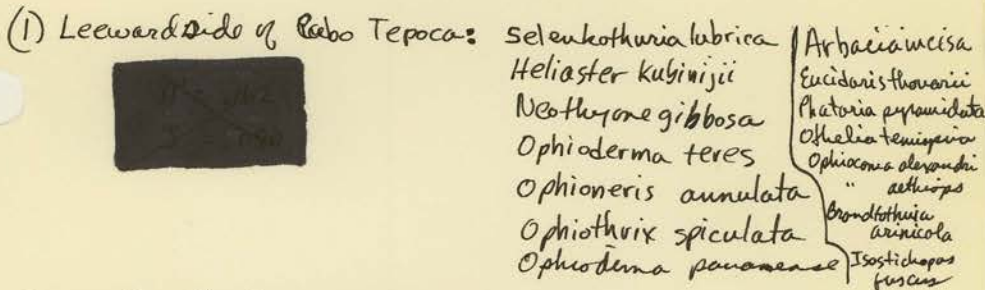 (1) Leeward side of Cabo Tepoca:
Selenkothuria lubrica
Heliaster kubinijii
Neothyone gibbosa
Ophioderma teres
Ophioneris annulata
Ophiothrix spiculata
Ophioderma panamense
Arbacia incisa
Eucidaris thouarii
Phataria pyramidata
Othelia tenuispina
Ophiocoma alexandri
" aethiops
Brandtothuria
arinicola
Isostichopus
fuscus